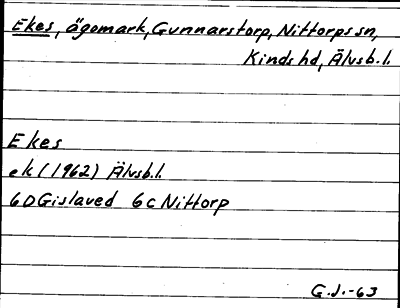 Ekes, ägomark, Gunnarstorp, Nittorps sn,
Kinds hd, Älvsb. l.
Ekes
ek (1962) Älvsb. l.
6D Gislaved 6c Nittorp
G.J.-63